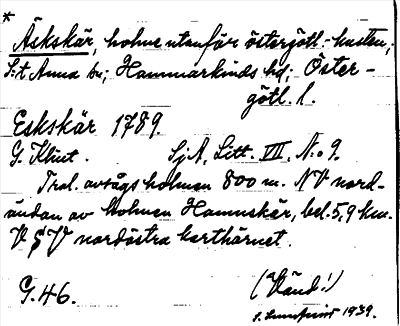 *
Äskskär, holme utanför östergötl.-kusten;
S:t Anna sn; Hammarkinds hd; Öster-
götl. l.
Eskskär 1789.
G. Klint. SjA, Litt. VII. N:o 9.
Trol. avsågs holmen 800 m. NV nord-
ändan av holmen Hamnskär, bel. 5,9 km.
V § V nordöstra karthörnet.
G. 46. (Känd!)
S. 1939.